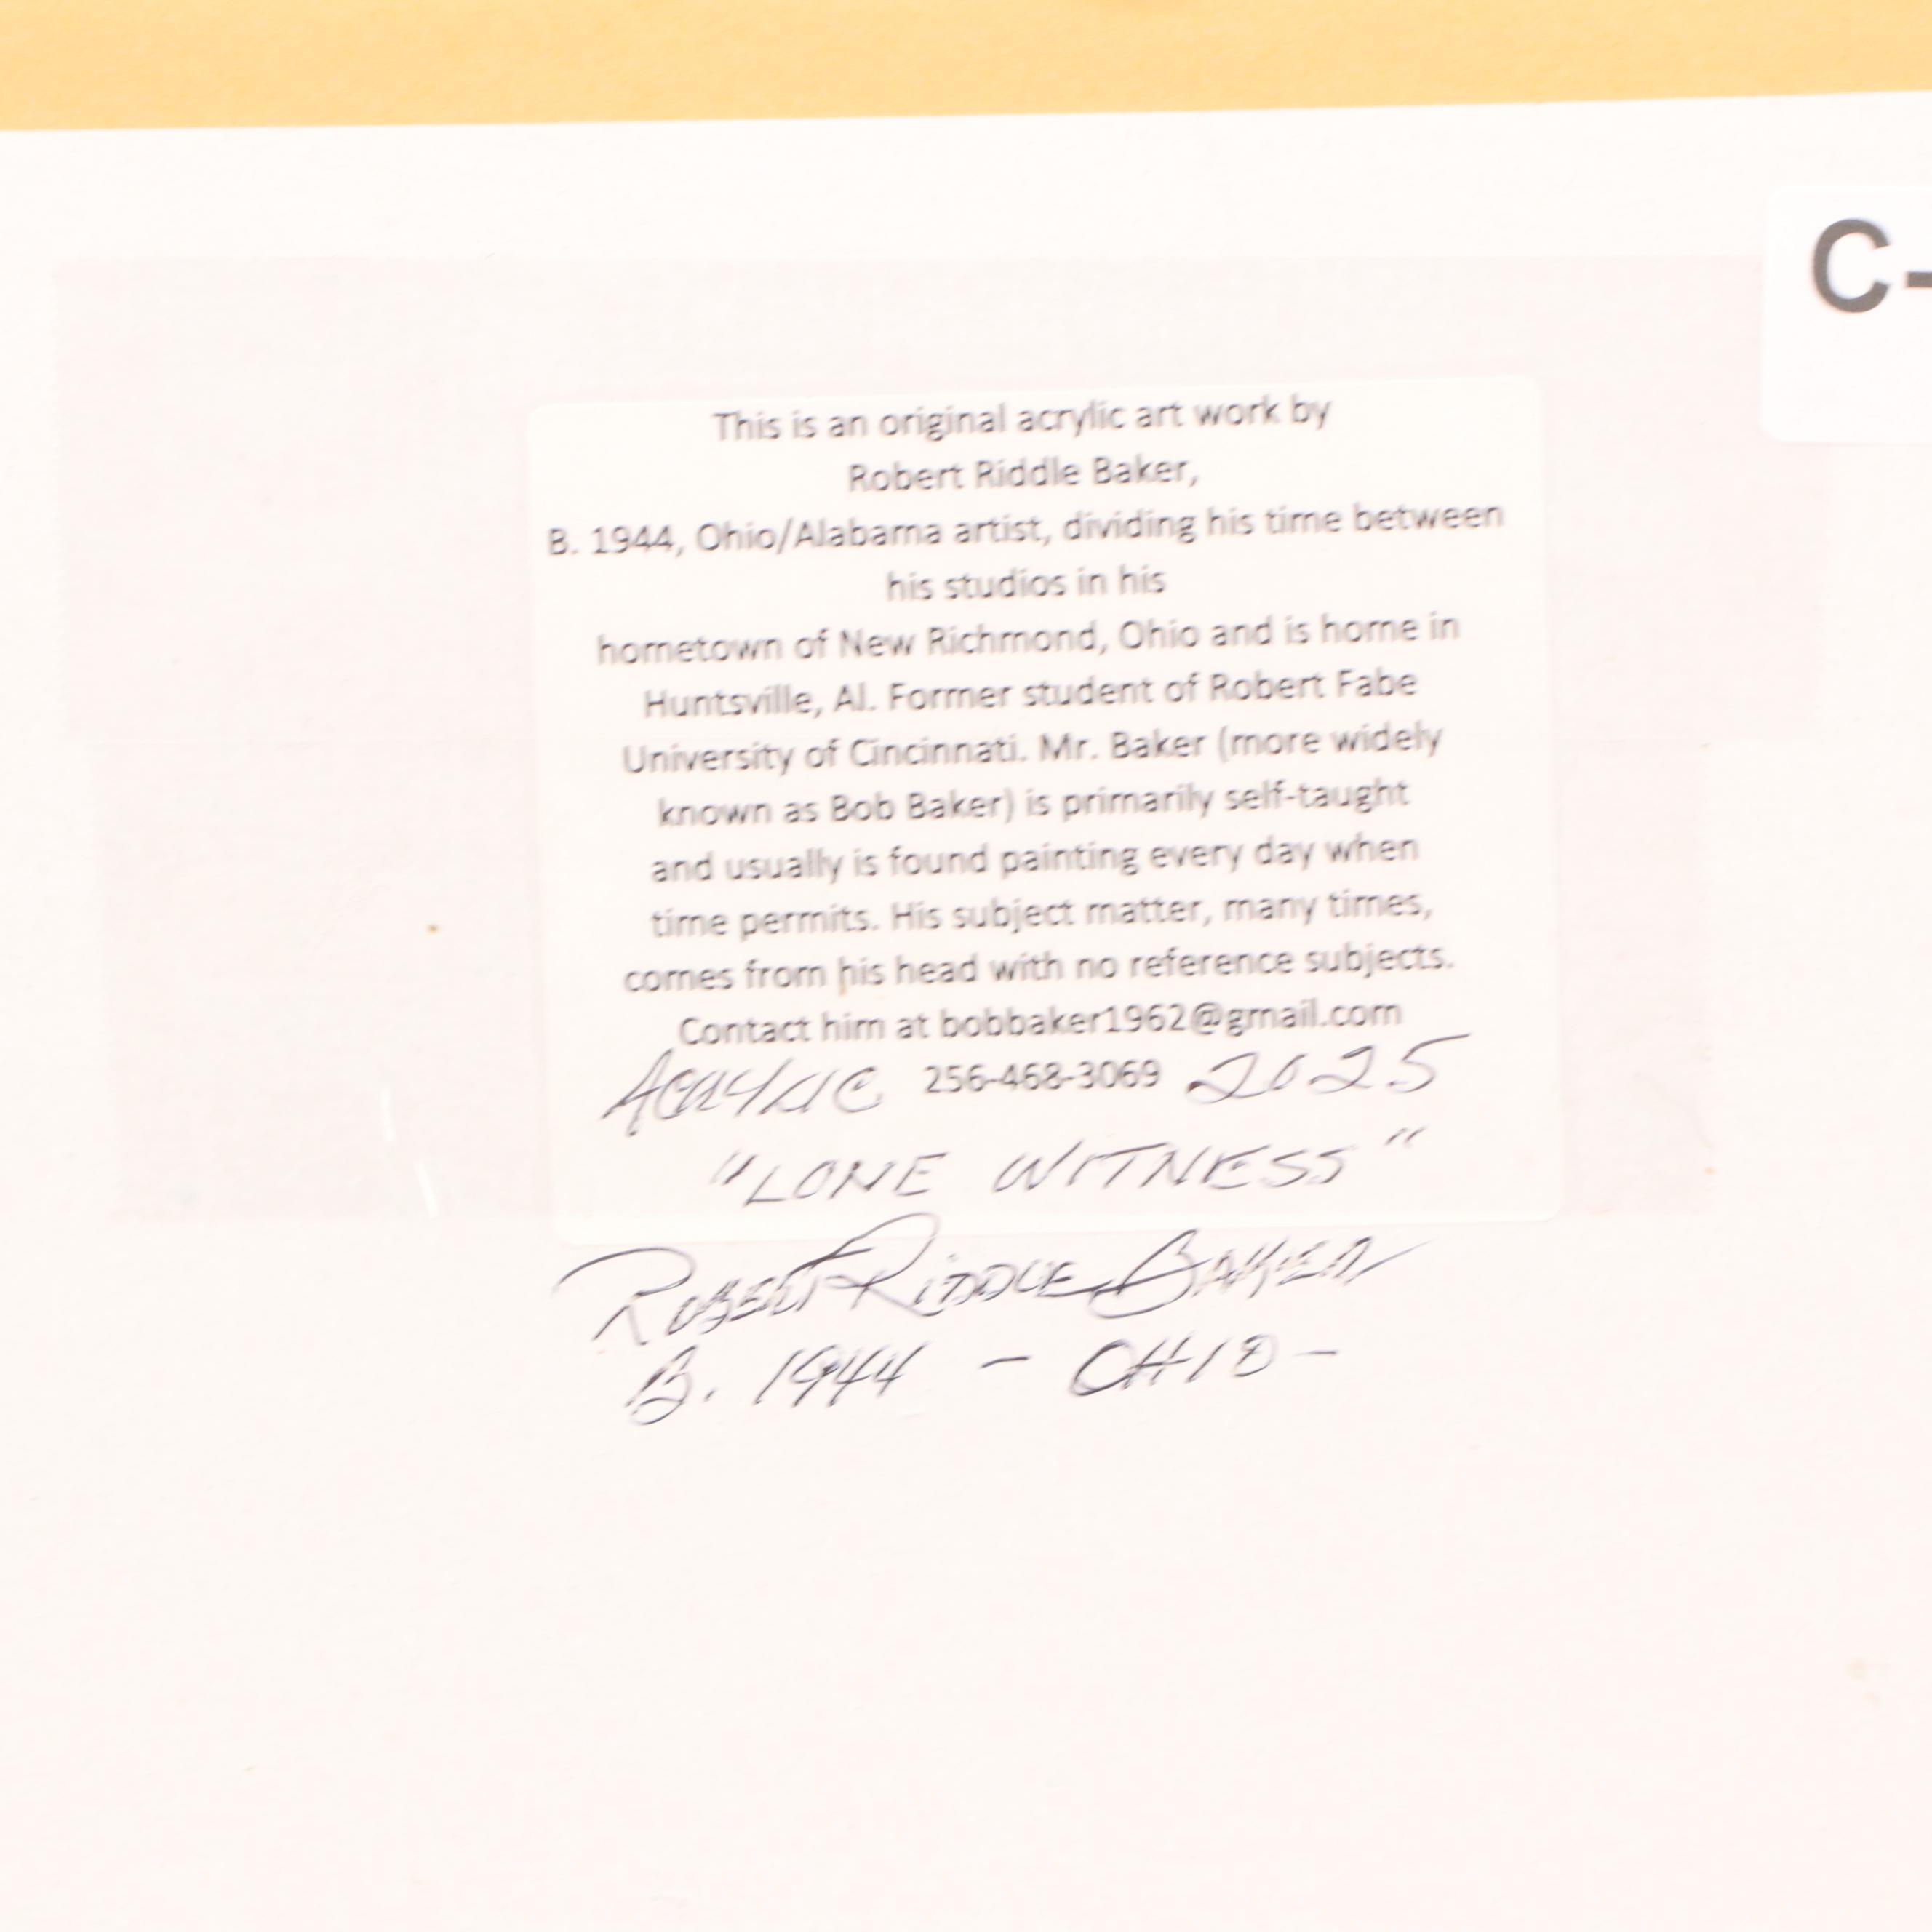 C-
This is an original acrylic art work by
Robert Riddle Baker,
B. 1944, Ohio/Alabama artist, dividing his time between
his studios in his
hometown of New Richmond, Ohio and is home in
Huntsville, Al. Former student of Robert Fabe
University of Cincinnati. Mr. Baker (more widely
known as Bob Baker) is primarily self-taught
and usually is found painting every day when
time permits. His subject matter, many times,
comes from his head with no reference subjects.
Contact him at bobbaker1962@gmail.com
ACRYLIC 256-468-3069 2025
"LONE WITNESS"
ROBERT RIDDLE BAKER
B. 1944 - OHIO -